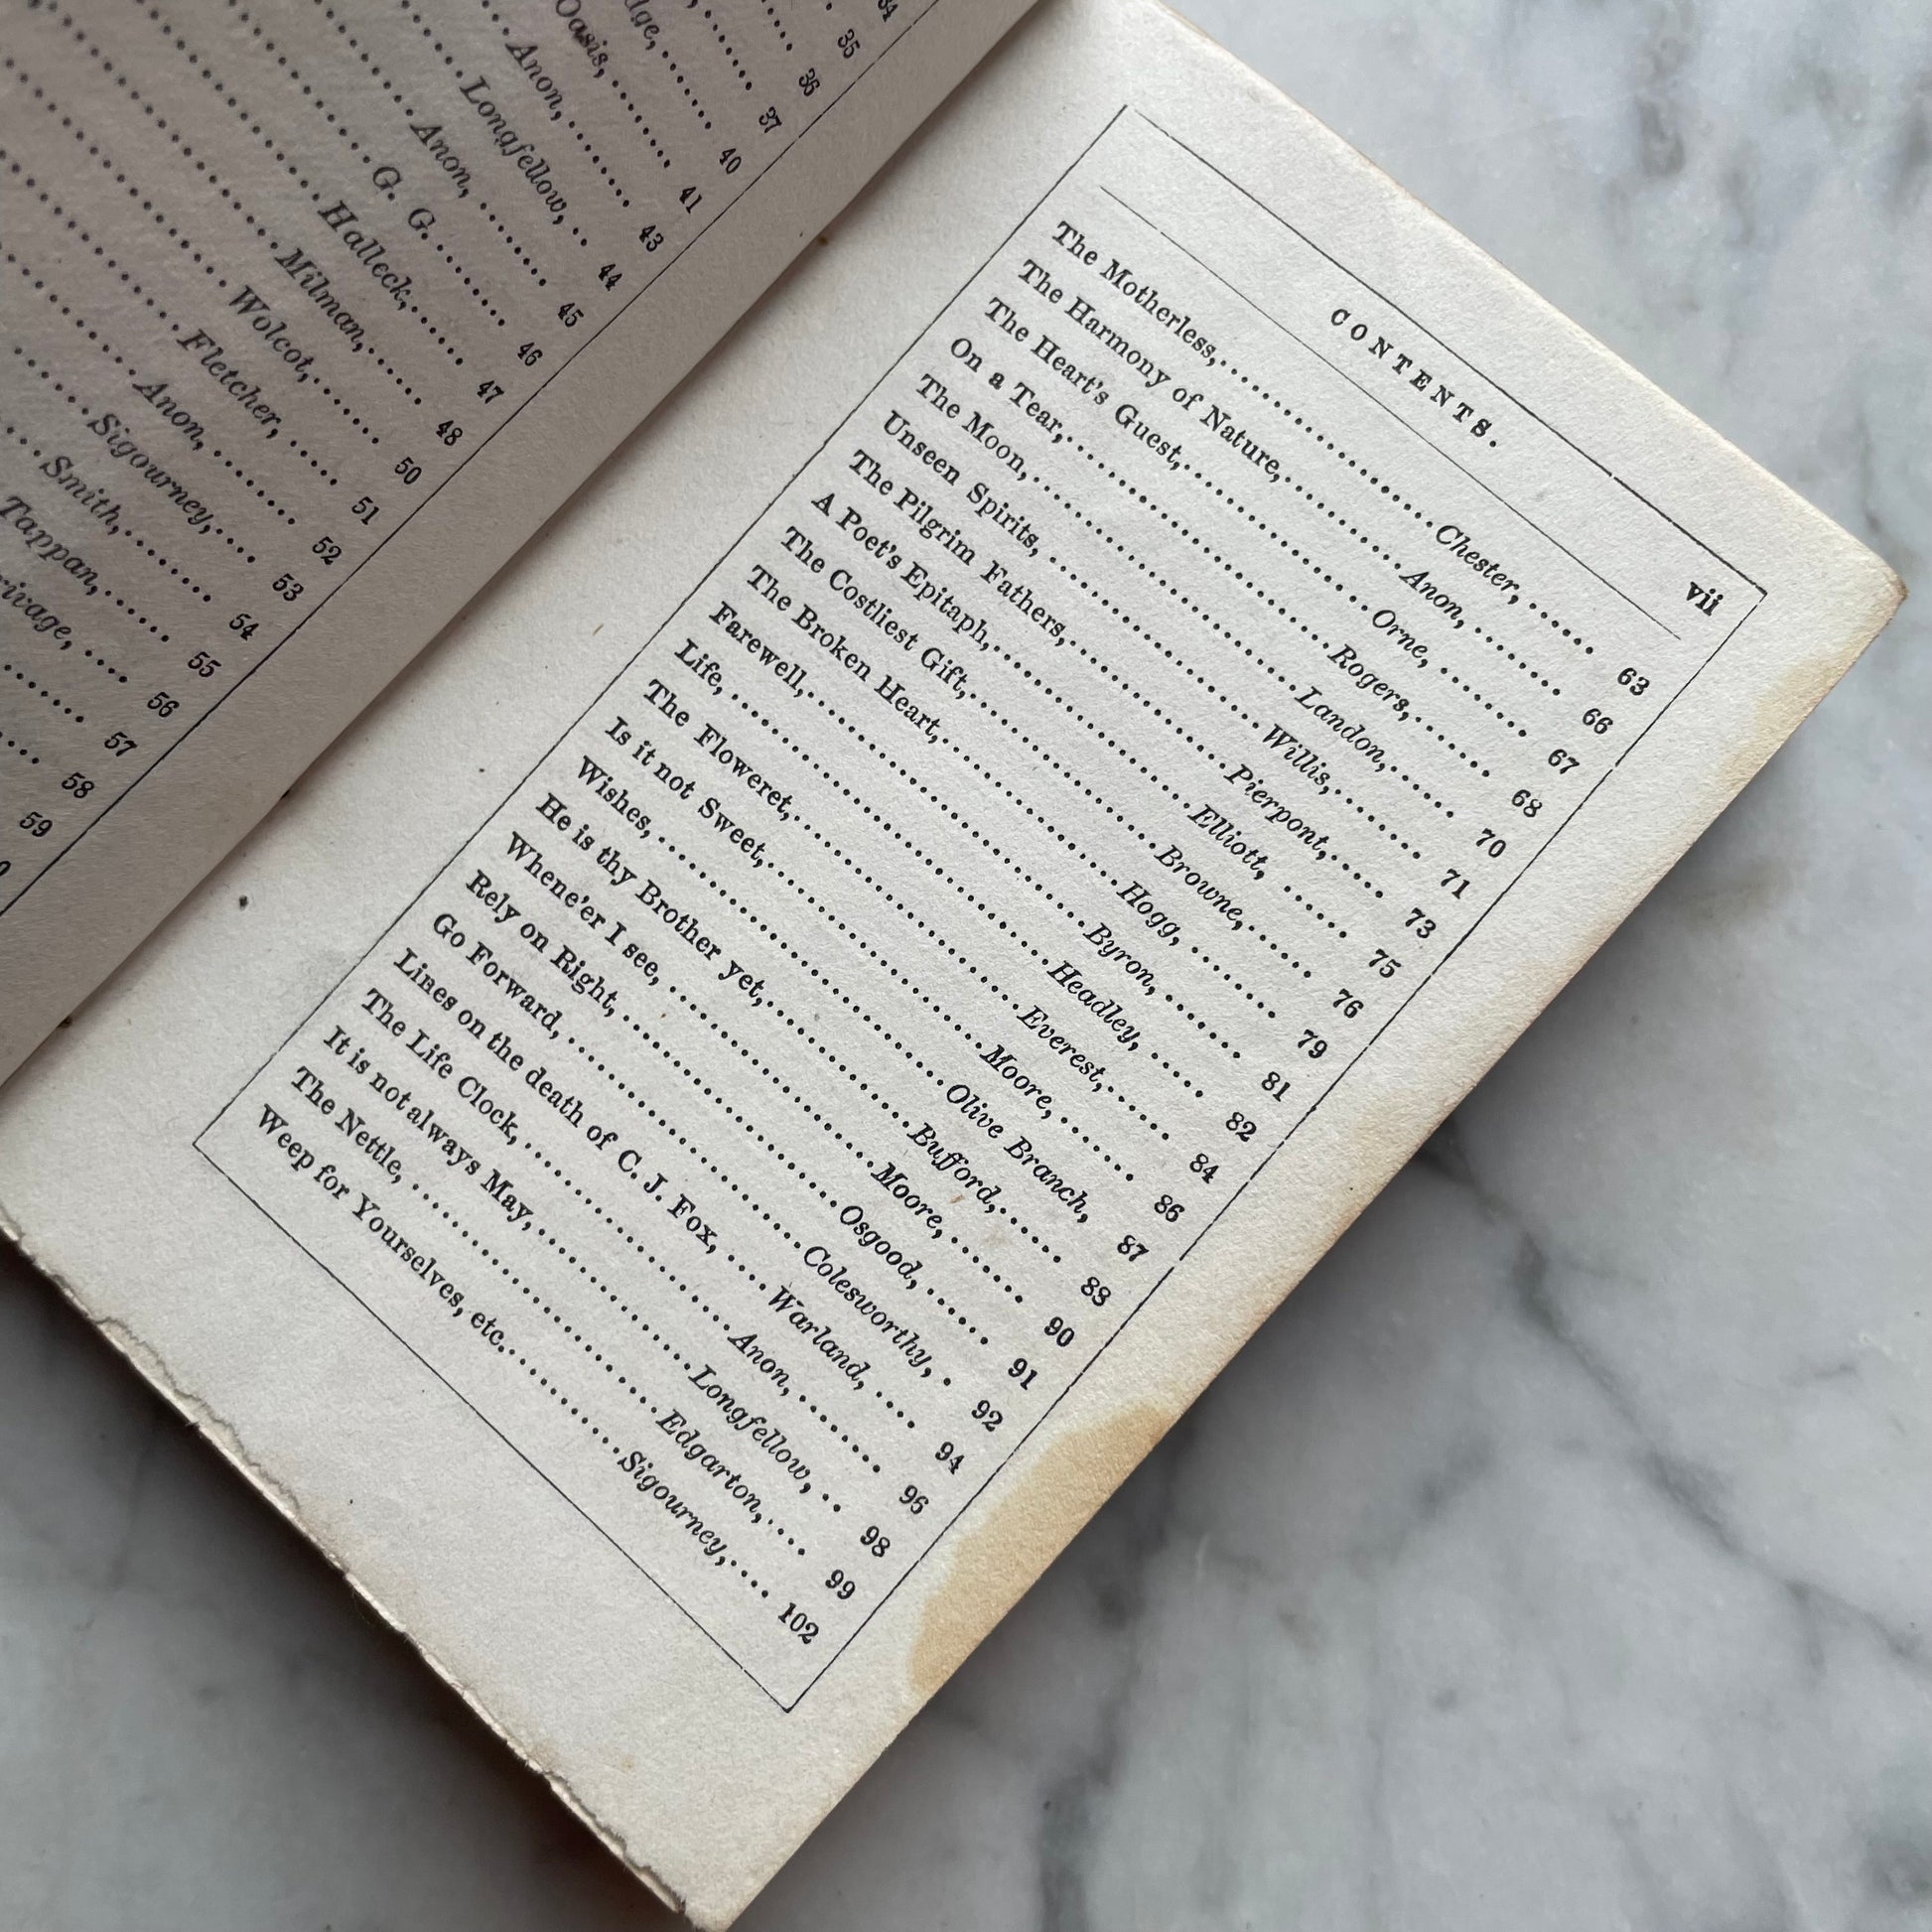 34
35
36
37
dge, ..... 40
Oasis, ....... 41
Anon, ....... 43
Longfellow, .. 44
Anon, ....... 45
G. G. ....... 46
Halleck, ..... 47
Milman, ..... 48
Wolcot, ...... 50
Fletcher, ..... 51
Anon, ....... 52
Sigourney, .... 53
Smith, ....... 54
Tappan, ...... 55
rivage, .... 56
57
58
59
CONTENTS. vii
The Motherless, .......... Chester, ..... 63
The Harmony of Nature, .......... Anon, ....... 66
The Heart's Guest, .......... Orne, ....... 67
On a Tear, .......... Rogers, ...... 68
The Moon, .......... Landon, ..... 70
Unseen Spirits, .......... Willis, ....... 71
The Pilgrim Fathers, .......... Pierpont, ..... 73
A Poet's Epitaph, .......... Elliott, ..... 75
The Costliest Gift, .......... Browne, ..... 76
The Broken Heart, .......... Hogg, ....... 79
Farewell, .......... Byron, ....... 81
Life, .......... Headley, ..... 82
The Floweret, .......... Everest, ...... 84
Is it not Sweet, .......... Moore, ...... 86
Wishes, .......... Olive Branch, 87
He is thy Brother yet, .......... Bufford, ...... 88
Whene'er I see, .......... Moore, ...... 90
Rely on Right, .......... Osgood, ...... 91
Go Forward, .......... Colesworthy, . 92
Lines on the death of C. J. Fox, .... Warland, .... 94
The Life Clock, .......... Anon, ....... 96
It is not always May, .......... Longfellow, .. 98
The Nettle, .......... Edgarton, .... 99
Weep for Yourselves, etc. .......... Sigourney, .... 102